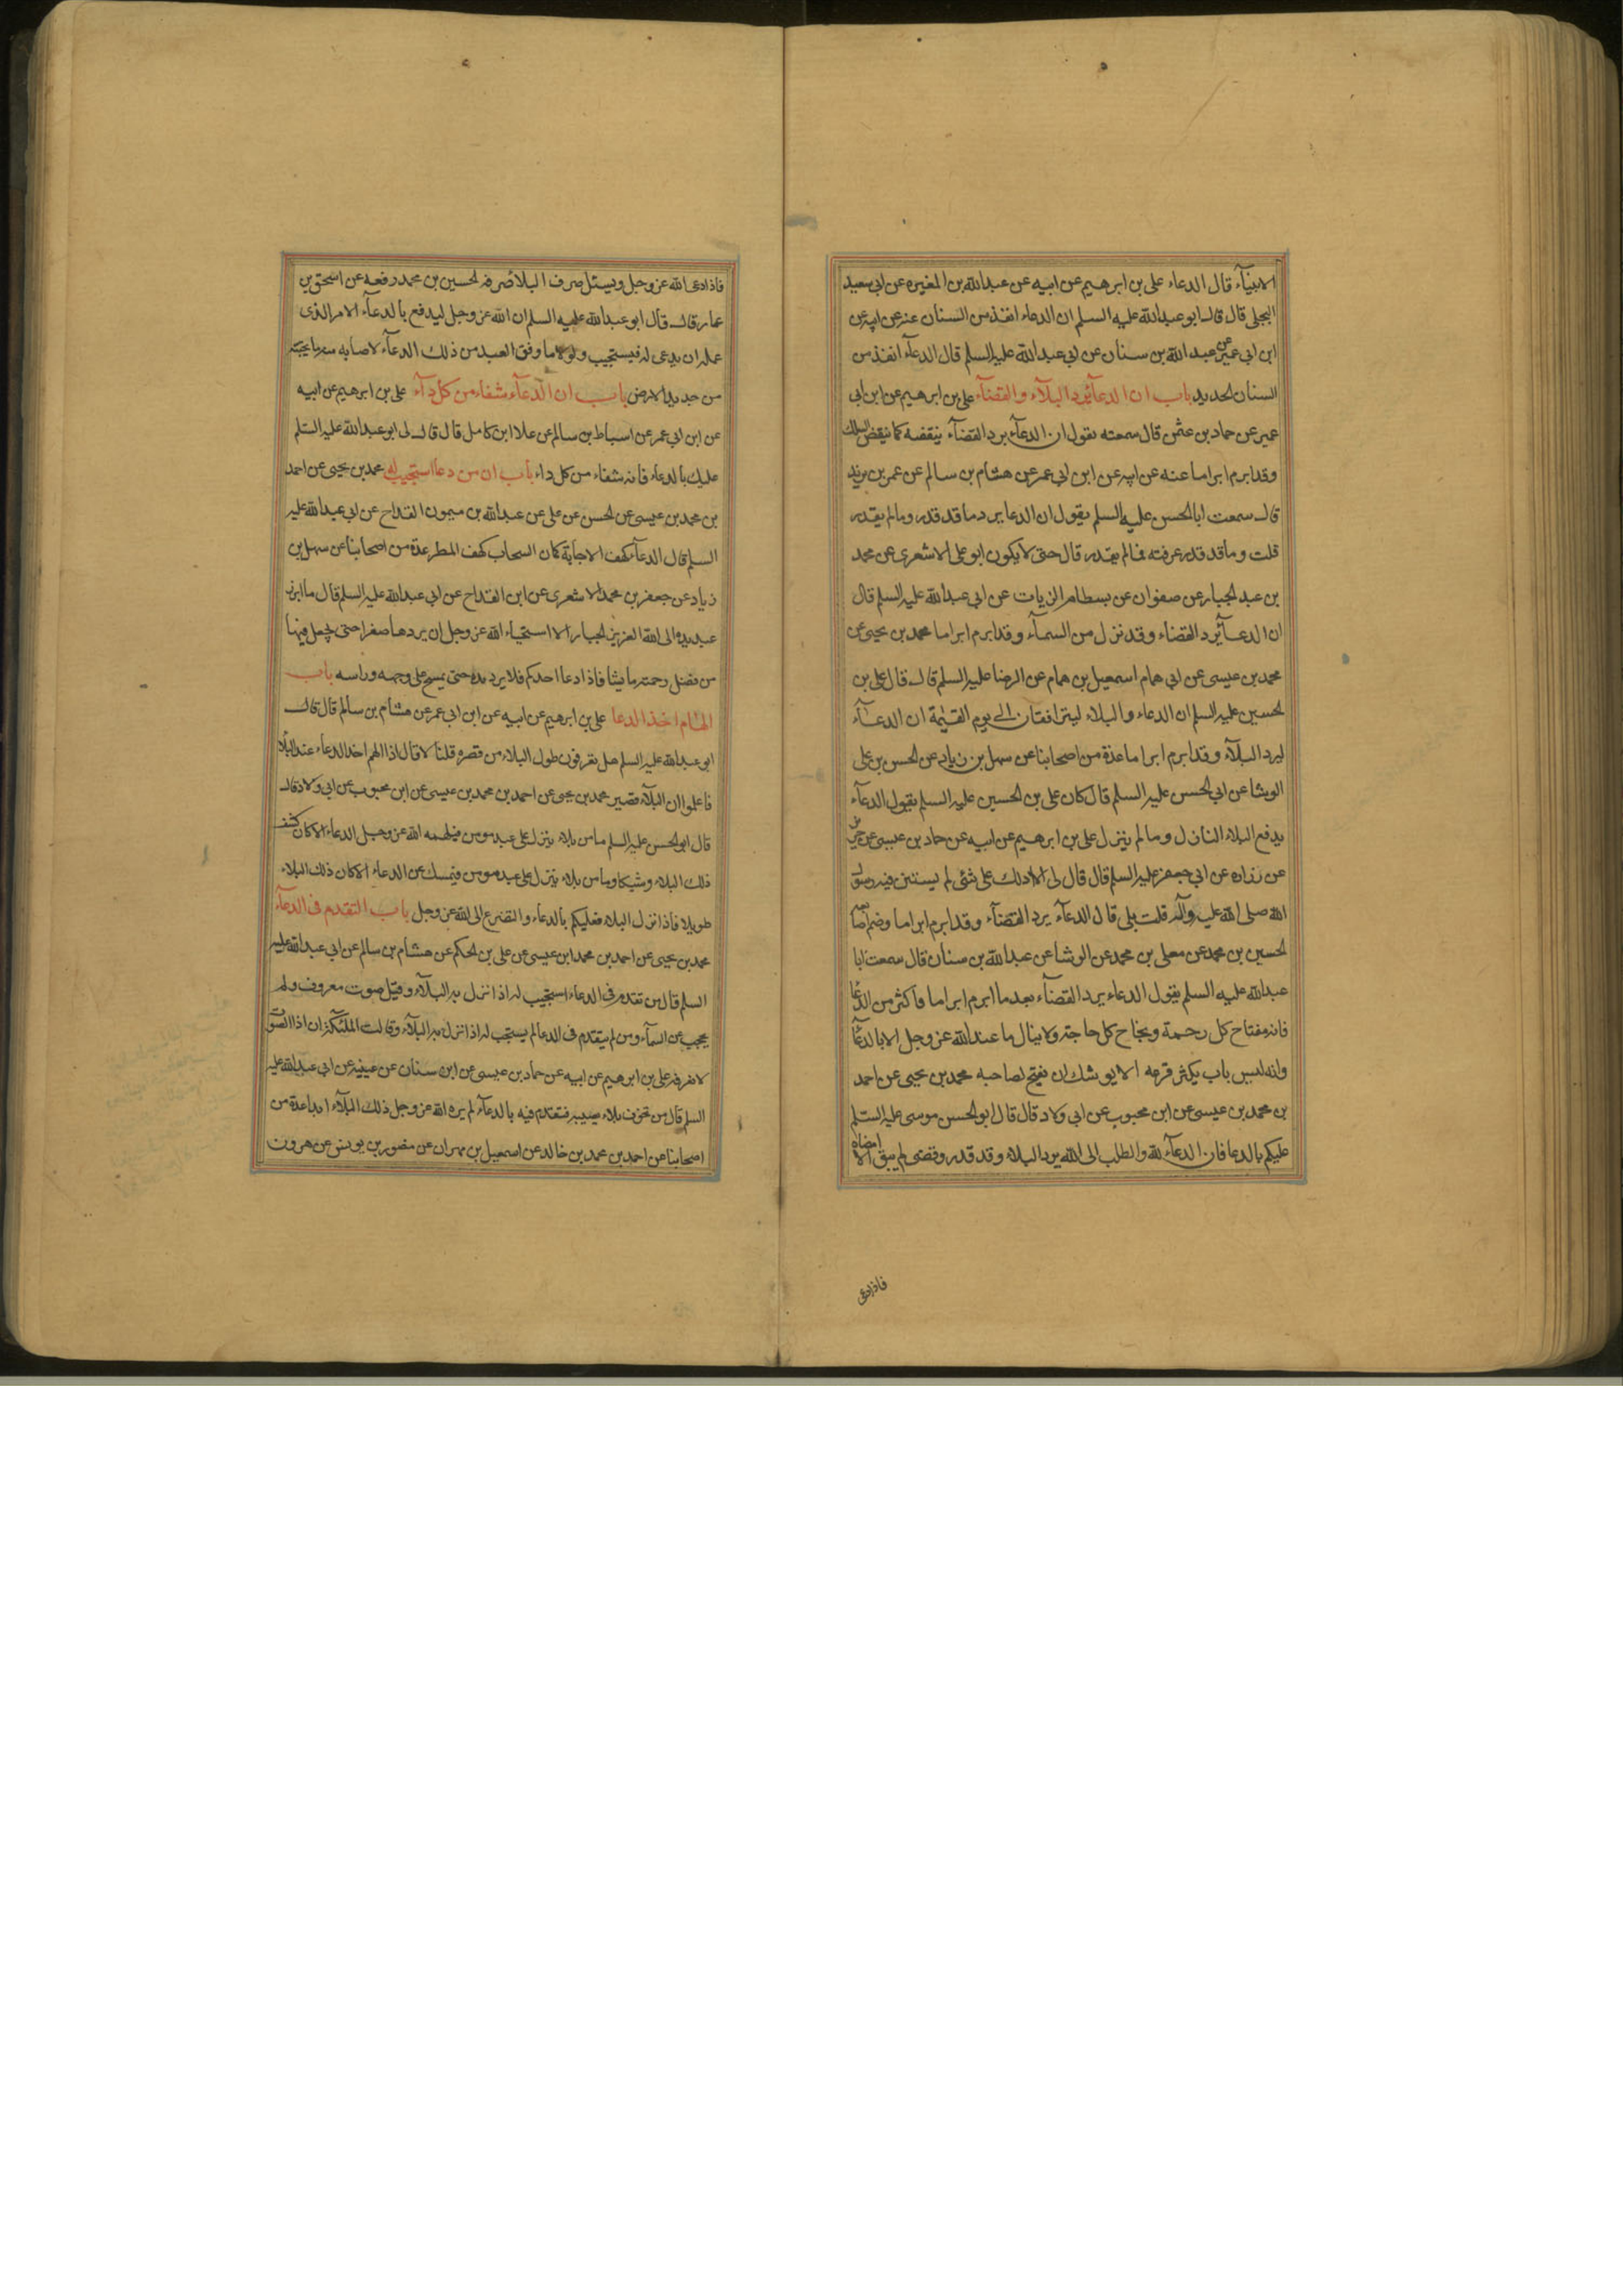 الانبيآء قال الدعاء على بن ابرهيم عن ابيه عن عبد الله بن المغيره عن ابى سعيد
البجلى قال قال ابو عبد الله عليه السلم ان الدعاء انفذ من السنان عنه عن ابيه عن
ابن ابى عمير عن عبد الله بن سنان عن ابى عبد الله عليه السلم قال الدعآء انفذ من
السنان الحديد باب ان الدعآء يرد البلآء والقضآء على بن ابرهيم عن ابن ابى
عمير عن حماد بن عثمن قال سمعته يقول ان الدعآء يرد القضآء ينقضه كما ينقض السلك
وقد ابرم ابراما عنه عن ابيه عن ابن ابى عمير عن هشام بن سالم عن عمر بن يزيد
قال سمعت ابا الحسن عليه السلم يقول ان الدعا يرد ما قد قدر وما لم يقدر
قلت وما قد قدر عرفته فما لم يقدر قال حتى لا يكون ابو على الاشعرى عن محمد
بن عبد الجبار عن صفوان عن بسطام الزيات عن ابى عبد الله عليه السلم قال
ان الدعآء يرد القضاء وقد نزل من السمآء وقد ابرم ابراما محمد بن يحيى عن
محمد بن عيسى عن ابى همام اسمعيل بن همام عن الرضا عليه السلم قال قال على بن
الحسين عليه السلم ان الدعاء والبلاء ليترافقان الى يوم القيٰمة ان الدعآء
ليرد البلآء وقد ابرم ابراما عدة من اصحابنا عن سهل بن زياد عن الحسن بن على
الوشا عن ابى الحسن عليه السلم قال كان على بن الحسين عليه السلم يقول الدعآء
يدفع البلاء النازل وما لم ينزل على بن ابرهيم عن ابيه عن حماد بن عيسى عن حريز
عن زراره عن ابى جعفر عليه السلم قال قال لى الا ادلك على شئ لم يستثن فيه رسول
الله صلى الله عليه وآله قلت بلى قال الدعآء يرد القضآء وقد ابرم ابراما وضم اصابعه
الحسين بن محمد عن معلى بن محمد عن الوشا عن عبد الله بن سنان قال سمعت ابا
عبد الله عليه السلم يقول الدعاء يرد القضآء بعد ما ابرم ابراما فاكثر من الدعا
فانه مفتاح كل رحمة ونجاح كل حاجة ولا ينال ما عند الله عز وجل الا بالدعآء
وانه ليس باب يكثر قرعه الا يوشك ان يفتح لصاحبه محمد بن يحيى عن احمد
بن محمد بن عيسى عن ابن محبوب عن ابى ولاد قال قال ابو الحسن موسى عليه السلم
عليكم بالدعا فان الدعآء لله والطلب الى الله يرد البلاء وقد قدر وقضى لم يبق الا امضاه
فاذا دعى
فاذا دعى الله عز وجل ويسئل صرف البلا صرفه الحسين بن محمد رفعه عن اسحق بن
عمار قال قال ابو عبد الله عليه السلم ان الله عز وجل ليدفع بالدعآء الامر الذى
علمه ان يدعى له فيستجيب ولولا ما وفق العبد من ذلك الدعآء لاصابه منه ما يجثه
من جديد الارض باب ان الدعآء شفاء من كل دآء على بن ابرهيم عن ابيه
عن ابن ابى عمر عن اسباط بن سالم عن علا ابن كامل قال قال لى ابو عبد الله عليه السلم
عليك بالدعآء فانه شفاء من كل داء باب ان من دعا استجيب له محمد بن يحيى عن احمد
بن محمد بن عيسى عن الحسن عن على عن عبد الله بن ميمون القداح عن ابى عبد الله عليه
السلم قال الدعآء كهف الاجابة كما ان السحاب كهف المطر عدة من اصحابنا عن سهل بن
زياد عن جعفر بن محمد الاشعرى عن ابن القداح عن ابى عبد الله عليه السلم قال ما ابرز
عبد يده الى الله العزيز الجبار الا استحياء الله عز وجل ان يردها صفرا حتى يجعل فيها
من فضل رحمته ما يشا فاذا دعا احدكم فلا يرد يده حتى يمسح على وجهه وراسه باب
الهام اخذ الدعا على بن ابرهيم عن ابيه عن ابن ابى عمر عن هشام بن سالم قال قال
ابو عبد الله عليه السلم هل تعرفون طول البلاء من قصره قلنا لا قال اذا الهم احد الدعاء عند البلاء
فاعلموا ان البلآء قصير محمد بن يحيى عن احمد بن محمد بن عيسى عن ابن محبوب عن ابى ولاد قال
قال ابو الحسن عليه السلم ما من بلاء ينزل على عبد مومن فيلهمه الله عز وجل الدعاء الا كان كشف
ذلك البلاء وشيكا وما من بلاء ينزل على عبد مومن فيمسك عن الدعاء الا كان ذلك البلاء
طويلا فاذا نزل البلاء فعليكم بالدعاء والتضرع الى الله عز وجل باب التقدم فى الدعآء
محمد بن يحيى عن احمد بن محمد ابن عيسى عن على بن الحكم عن هشام بن سالم عن ابى عبد الله عليه
السلم قال من تقدم فى الدعاء استجيب له اذا نزل به البلآء وقيل صوت معروف ولم
يحجب عن السمآء ومن لم يتقدم فى الدعا لم يستجب له اذا نزل به البلآء وقالت الملئكة ان ذا الصوت
لا نعرفه على بن ابرهيم عن ابيه عن حماد بن عيسى عن ابن سنان عن عيينه عن ابى عبد الله عليه
السلم قال من تخوف بلاء يصيبه فتقدم فيه بالدعآء لم يره الله عز وجل ذلك البلآء ابدا عدة من
اصحابنا عن احمد بن محمد بن خالد عن اسمعيل بن مهران عن منصور بن يونس عن هرون